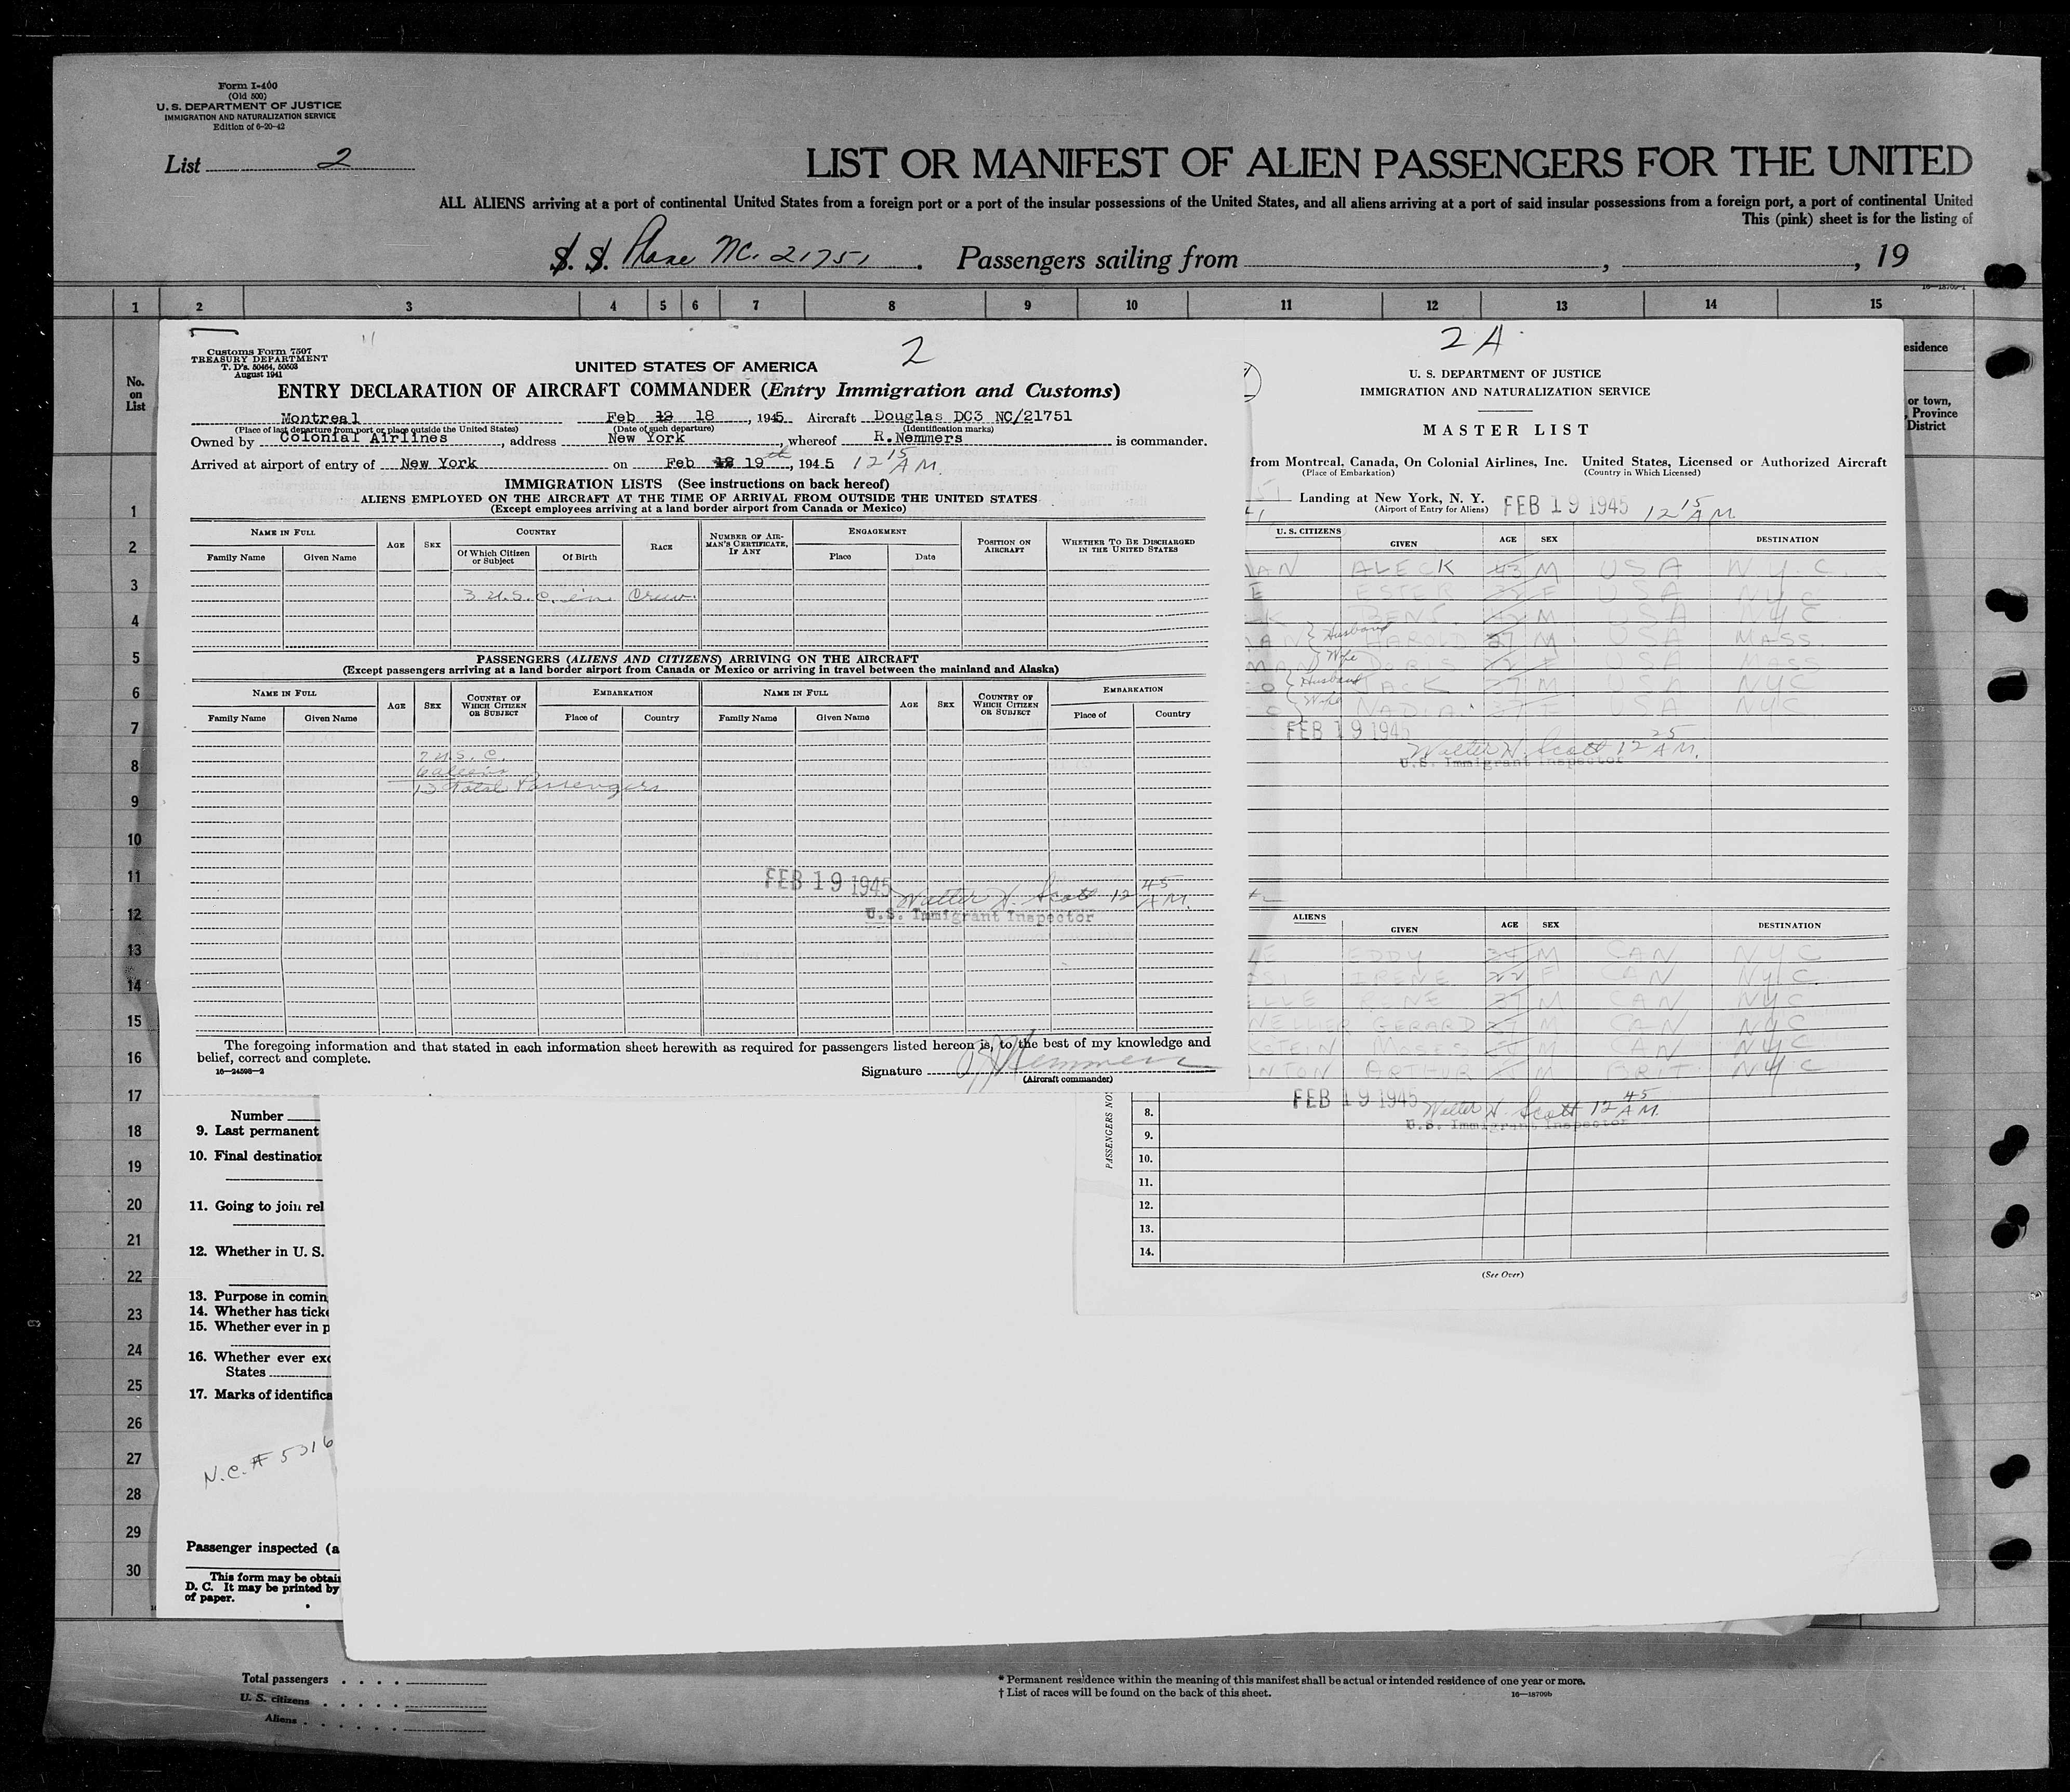 Form I-400
(Old 500)
U. S. DEPARTMENT OF JUSTICE
IMMIGRATION AND NATURALIZATION SERVICE
Edition of 6-20-42
List 2
LIST OR MANIFEST OF ALIEN PASSENGERS FOR THE UNITED
ALL ALIENS arriving at a port of continental United States from a foreign port or a port of the insular possessions of the United States, and all aliens arriving at a port of said insular possessions from a foreign port, a port of continental United
This (pink) sheet is for the listing of
S. S. Plane NC. 21751. Passengers sailing from , , 19
16—18709-1
1 2 3 4 5 6 7 8 9 10 11 12 13 14 15
No.
on
List
esidence
or town,
, Province
District
Customs Form 7507
TREASURY DEPARTMENT
T. D's. 50464, 50503
August 1941
2
UNITED STATES OF AMERICA
ENTRY DECLARATION OF AIRCRAFT COMMANDER (Entry Immigration and Customs)
Montreal Feb 18, 1945 Aircraft Douglas DC3 NC/21751
(Place of last departure from port or place outside the United States) (Date of such departure) (Identification marks)
Owned by Colonial Airlines, address New York, whereof R.Nemmers is commander.
Arrived at airport of entry of New York on Feb 19th, 1945 12 15 A M.
IMMIGRATION LISTS (See instructions on back hereof)
ALIENS EMPLOYED ON THE AIRCRAFT AT THE TIME OF ARRIVAL FROM OUTSIDE THE UNITED STATES
(Except employees arriving at a land border airport from Canada or Mexico)
NAME IN FULL AGE SEX COUNTRY RACE NUMBER OF AIRMAN'S CERTIFICATE, IF ANY ENGAGEMENT POSITION ON AIRCRAFT WHETHER TO BE DISCHARGED IN THE UNITED STATES
Family Name Given Name Of Which Citizen or Subject Of Birth Place Date
3 U.S.C. in Crew.
PASSENGERS (ALIENS AND CITIZENS) ARRIVING ON THE AIRCRAFT
(Except passengers arriving at a land border airport from Canada or Mexico or arriving in travel between the mainland and Alaska)
NAME IN FULL AGE SEX COUNTRY OF WHICH CITIZEN OR SUBJECT EMBARKATION NAME IN FULL AGE SEX COUNTRY OF WHICH CITIZEN OR SUBJECT EMBARKATION
Family Name Given Name Place of Country Family Name Given Name Place of Country
7 U.S. C.
6 aliens
13 total Passengers
FEB 19 1945 Walter H. Scott 12 45 A M.
U.S. Immigrant Inspector
The foregoing information and that stated in each information sheet herewith as required for passengers listed hereon is, to the best of my knowledge and
belief, correct and complete.
16—24598-2
Signature
(Aircraft commander)
2 A
U. S. DEPARTMENT OF JUSTICE
IMMIGRATION AND NATURALIZATION SERVICE
MASTER LIST
from Montreal, Canada, On Colonial Airlines, Inc. United States, Licensed or Authorized Aircraft
(Place of Embarkation) (Country in Which Licensed)
Landing at New York, N. Y. FEB 19 1945 12 15 A M
(Airport of Entry for Aliens)
U. S. CITIZENS GIVEN AGE SEX DESTINATION
AN ALECK 43 M USA N.Y.C.
E ESTER F USA NYC
K BENJ. M USA NYC
AN Husband HAROLD 27 M USA MASS
MAN Wife DORIS F USA MASS
O Husband JACK 37 M USA NYC
C Wife NADIA 37 F USA NYC
FEB 19 1945
Walter H. Scott 12 25 A M.
U.S. Immigrant Inspector
ALIENS GIVEN AGE SEX DESTINATION
E EDDY 34 M CAN NYC
SI IRENE 22 F CAN NYC.
LLE RENE 37 M CAN NYC
WELLIER GERARD M CAN NYC
STEIN MOSES M CAN NYC
NTON ARTHUR M BRIT. NYC
FEB 19 1945 Walter H. Scott 12 45 A M.
U.S. Immigrant Inspector
PASSENGERS NO
8.
9.
10.
11.
12.
13.
14.
(See Over)
1
2
3
4
5
6
7
8
9
10
11
12
13
14
15
16
17
18
19
20
21
22
23
24
25
26
27
28
29
30
Number
9. Last permanent
10. Final destination
11. Going to join rel
12. Whether in U. S.
13. Purpose in comin
14. Whether has ticke
15. Whether ever in p
16. Whether ever exc
States
17. Marks of identifica
N.C.# 5316
Passenger inspected (a
This form may be obtai
D. C. It may be printed by
of paper.
Total passengers
U. S. citizens
Aliens
* Permanent residence within the meaning of this manifest shall be actual or intended residence of one year or more.
† List of races will be found on the back of this sheet.
16—18709b